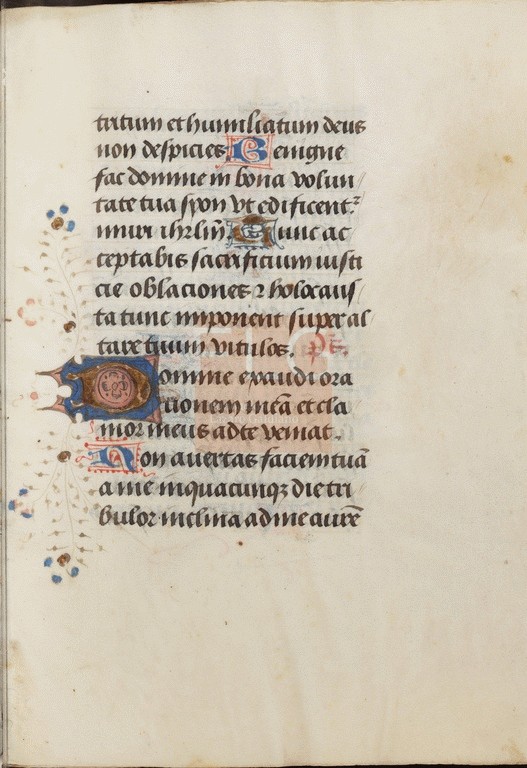 tritum et humiliatum deus
non despicies Benigne
fac domine in bona volun
tate tua syon vt edificent᷑
muri ihrlm̄ Tunc ac
ceptabis sacrificium iusti
cie oblaciones ⁊ holocaus
ta tunc imponent super al
tare tuum vitulos. ps.
Domine exaudi ora
tionem meā et cla
mor meus ad te veniat.
Non auertas faciem tuā
a me in quacunqꝫ die tri
bulor inclina ad me aurē